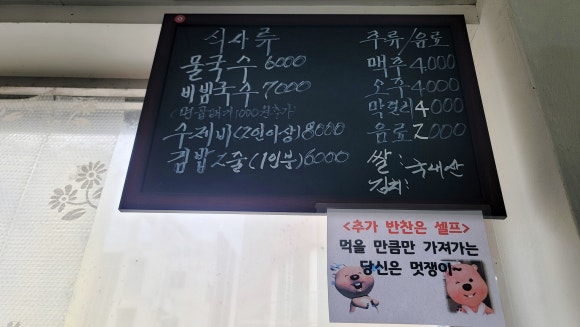 식사류
물국수 6000
비빔국수 7000
(면 곱빼기 1000원추가)
수제비(2인이상) 8000
김밥 2줄(1인분) 6000
주류/음료
맥주 4.000
소주 4.000
막걸리 4.000
음료 2.000
쌀: 국내산
김치:
<추가 반찬은 셀프>
먹을 만큼만 가져가는
당신은 멋쟁이~